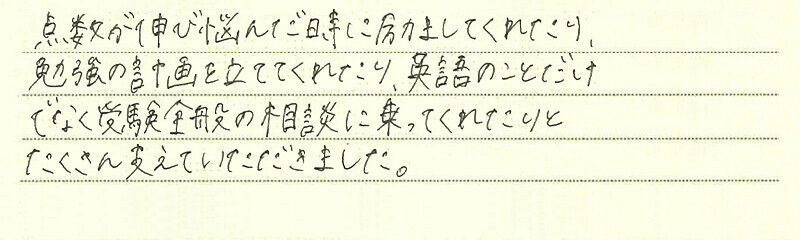 点数が伸び悩んだ時に励ましてくれたり、
勉強の計画を立ててくれたり、英語のことだけ
でなく受験全般の相談に乗ってくれたりと
たくさん支えていただきました。